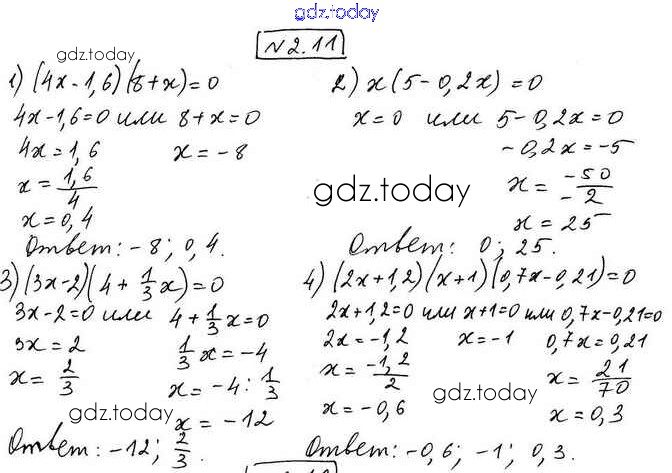 gdz.today
№2.11
gdz.today
1) (4x-1,6)(8+x)=0
4x-1,6=0 или 8+x=0
4x=1,6 x=-8
x=1,6/4
x=0,4
Ответ: -8; 0,4.
2) x(5-0,2x)=0
x=0 или 5-0,2x=0
-0,2x=-5
gdz.today
x=-50/-2
x=25
Ответ: 0; 25.
3) (3x-2)(4+1/3x)=0
3x-2=0 или 4+1/3x=0
3x=2 1/3x=-4
x=2/3 x=-4:1/3
gdz.today
x=-12
Ответ: -12; 2/3.
4) (2x+1,2)(x+1)(0,7x-0,21)=0
2x+1,2=0 или x+1=0 или 0,7x-0,21=0
2x=-1,2 x=-1 0,7x=0,21
x=-1,2/2 x=21/70
gdz.today
x=-0,6 x=0,3
Ответ: -0,6; -1; 0,3.